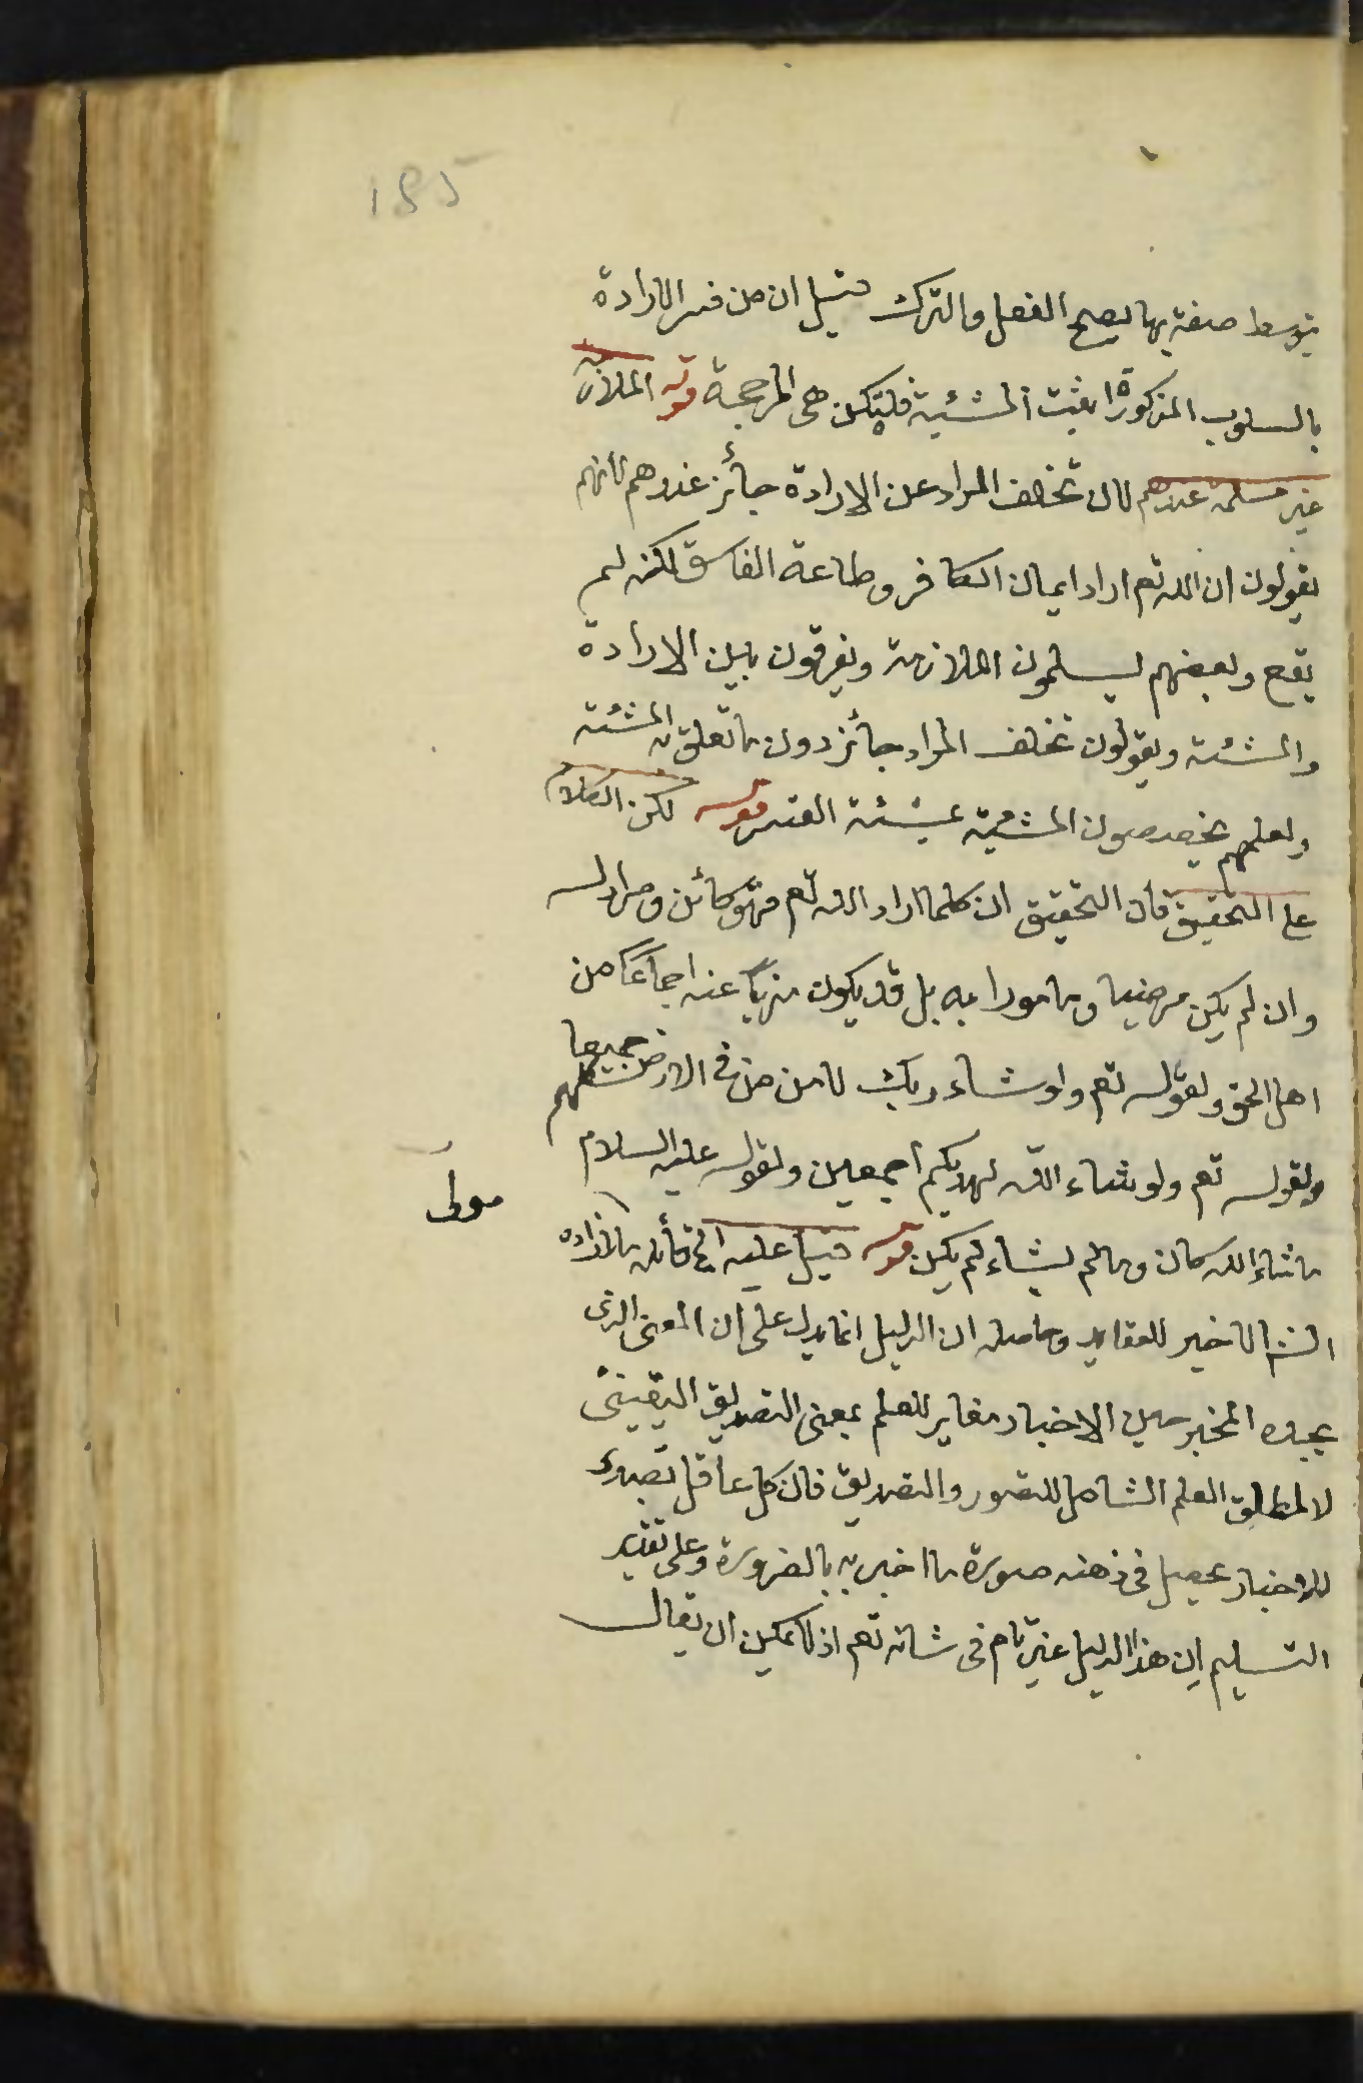 185
بتوسط صفة بها يصح الفعل والترك قيل ان من فسر الارادة
بالسلوب المذكورة اثبت المشئية فليكن هى المرجحة قوله الملازمة
غير مسلمة عندهم لان تخلف المراد عن الارادة جائز عندهم لانهم
يقولون ان الله تع اراد ايمان الكافر وطاعة الفاسق لكنه لم
يقع وبعضهم يسلمون الملازمة ويفرقون بين الارادة
والمشئة ويقولون تخلف المراد جائز دون ما تعلق به المشئة
ولعلهم يخصصون المشئية بمشئة القسر قوله لكن الكلام
على التحقيق فان التحقيق ان كلما اراد الله تع فهو كائن ومراد له
وان لم يكن مرضيا ومامورا به بل قد يكون منهيا عنه اجماعا من
اهل الحق ولقوله تع ولو شاء ربك لامن من فى الارض كلهم جميعا
ولقوله تع ولو شاء الله لهديكم اجمعين ولقوله عليه السلام
ما شاء الله كان وما لم يشاء لم يكن قوله قيل عليه الخ قائله مولى
زاده
الشارح الاخير للعقايد وحاصله ان الدليل انما يدل على ان المعنى الذى
يجده المخبر حين الاخبار مغاير للعلم بمعنى التصديق اليقينى
لا لمطلق العلم الشامل للتصور والتصديق فان كل عاقل تصدى
للاخبار يحصل فى ذهنه صورة ما اخبر به بالضرورة وعلى تقدير
التسليم ان هذا الدليل غير تام فى شانه تع اذ لا يمكن ان يقال